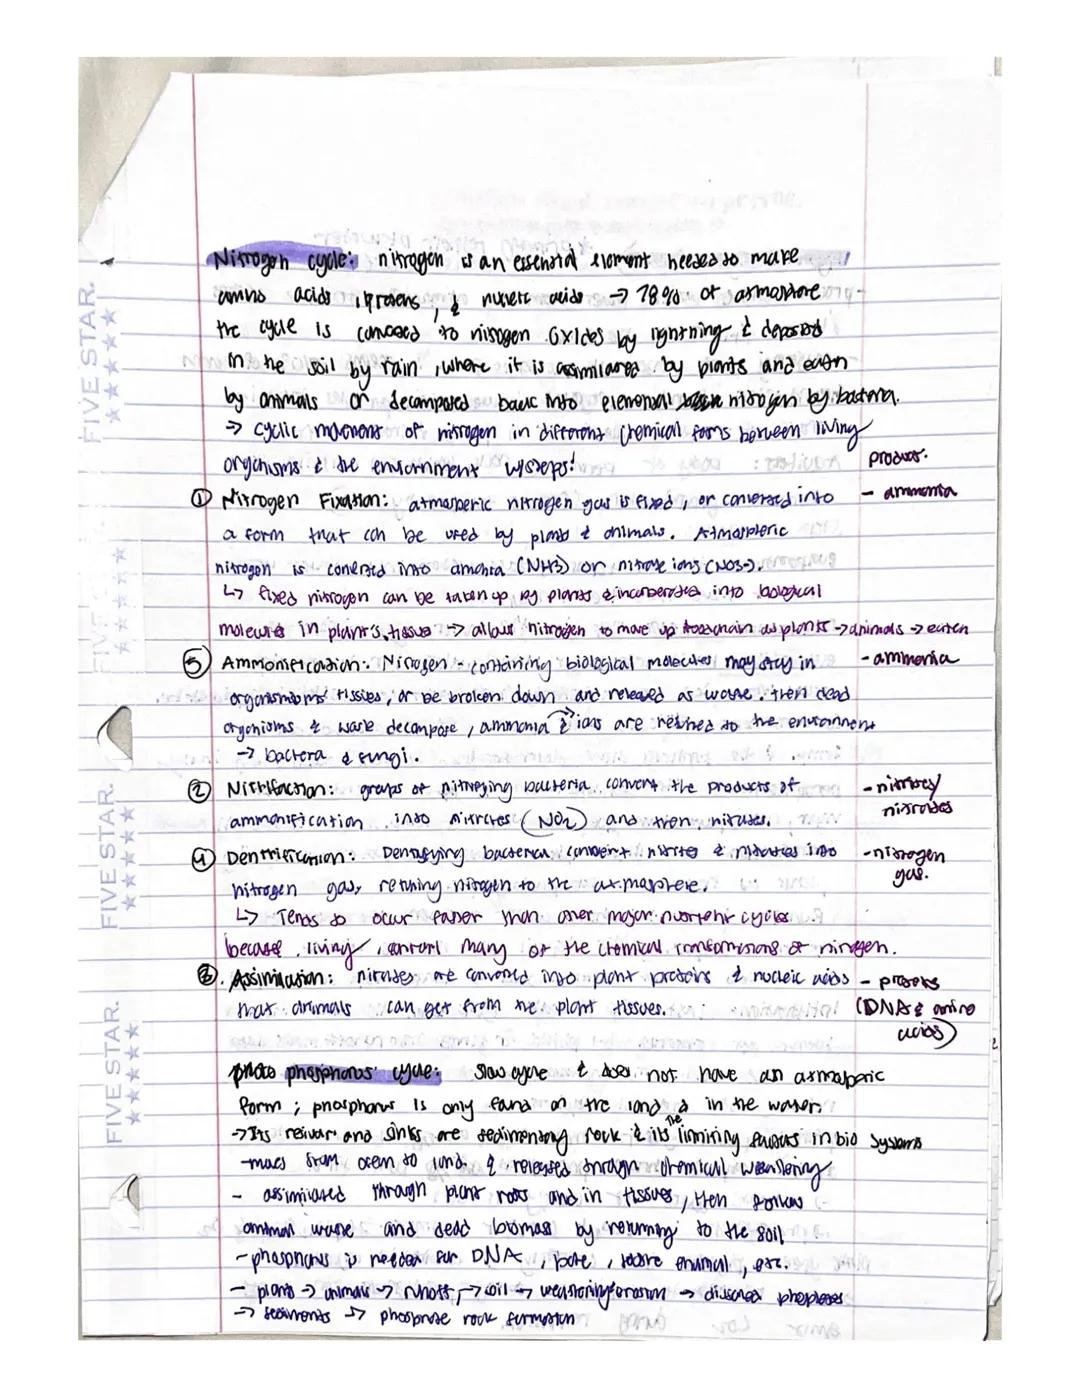 Nitrogen cycle: nitrogen is an essential element needed to make
amino acids, proteins, & nucleic acids → 78% of atmosphere
the cycle is converted to nitrogen oxides by lightning & deposited
in the soil by rain, where it is assimilated by plants and eaten
by animals or decomposed back into elemental nitrogen by bacteria.
→ cyclic movement of nitrogen in different chemical forms between living
organisms & the environment w/steps:
product:
① Nitrogen Fixation: atmosperic nitrogen gas is fixed, or converted into
- ammonia
a form that can be used by plants & animals. Atmospheric
nitrogen is converted into amonia (NH3) or nitrate ions (NO3-).
↳ fixed nitrogen can be taken up by plants & incorporated into biological
molecules in plant's tissue → allows nitrogen to move up foodchain as plants → animals → eaten
⑤ Ammonification: Nitrogen-containing biological molecules may stay in
- ammonia
organisms' tissues, or be broken down and released as waste. then dead
organisms & waste decompose, ammonia & ions are returned to the environment
→ bacteria & fungi.
② Nitrification: groups of nitrifying bacteria convert the products of
- nitrites/
nitrates
ammonification into nitrites (NO2) and then nitrates.
④ Denitrification: Denitrifying bacteria convert nitrites & nitrates into
- nitrogen
gas.
nitrogen gas, returning nitrogen to the atmosphere.
↳ Tends to occur faster than other major nutrient cycles
because living control many of the chemical transformations of nitrogen.
③. Assimilation: nitrates are converted into plant proteins & nucleic acids
- proteins
that animals can get from the plant tissues.
(DNA & amino
acids)
phosphorus cycle: slow cycle & does not have an atmosperic
form; phosphorus is only found on the land & in the water.
→ Its reservoir and sinks are sedimentary rock & its the limiting factors in bio systems
- moves from ocean to land & released through chemical weathering
- assimilated through plant roots and in tissues, then follow
animal waste and dead biomass by returning to the soil
- phosphorus is needed for DNA, bone, tooth enamal, etc.
- plants → animals → runoff → soil → weathering/erosion → dissolved phosphates
→ sediments → phosphate rock formation
FIVE STAR.
FIVE STAR.
FIVE STAR.